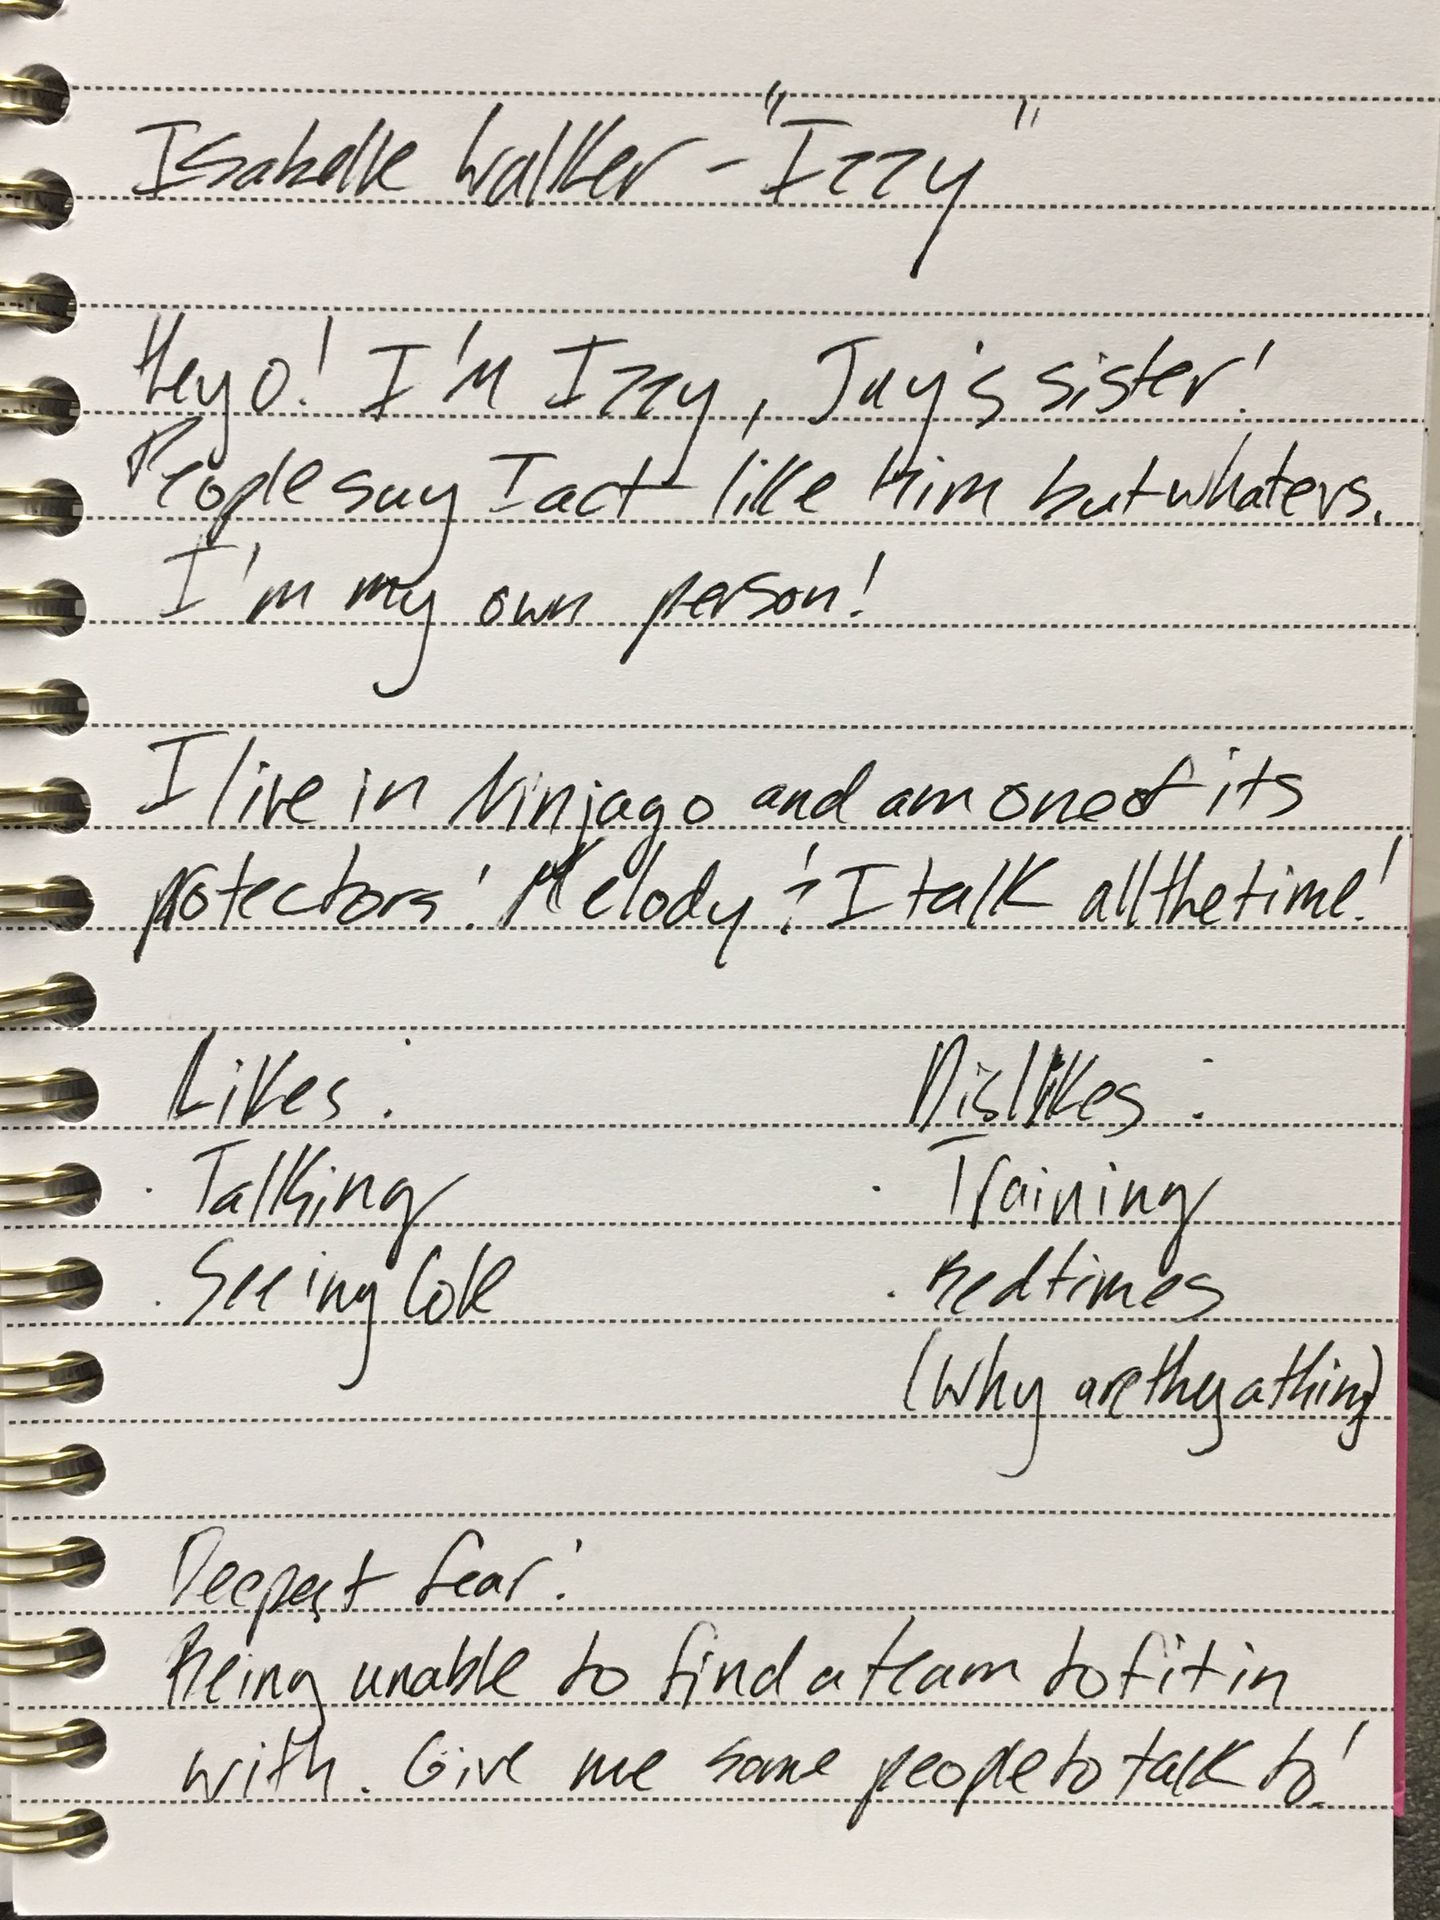 Isabelle Walker - "Izzy"
Heyo! I'm Izzy, Jay's sister!
People say I act like Him but whatevs.
I'm my own person!
I live in Ninjago and am one of its
protectors! Melody & I talk all the time!
Likes: Dislikes:
· Talking · Training
· Seeing Cole · Bedtimes
(Why are they a thing)
Deepest fear:
Being unable to find a team to fit in
with. Give me some people to talk to!